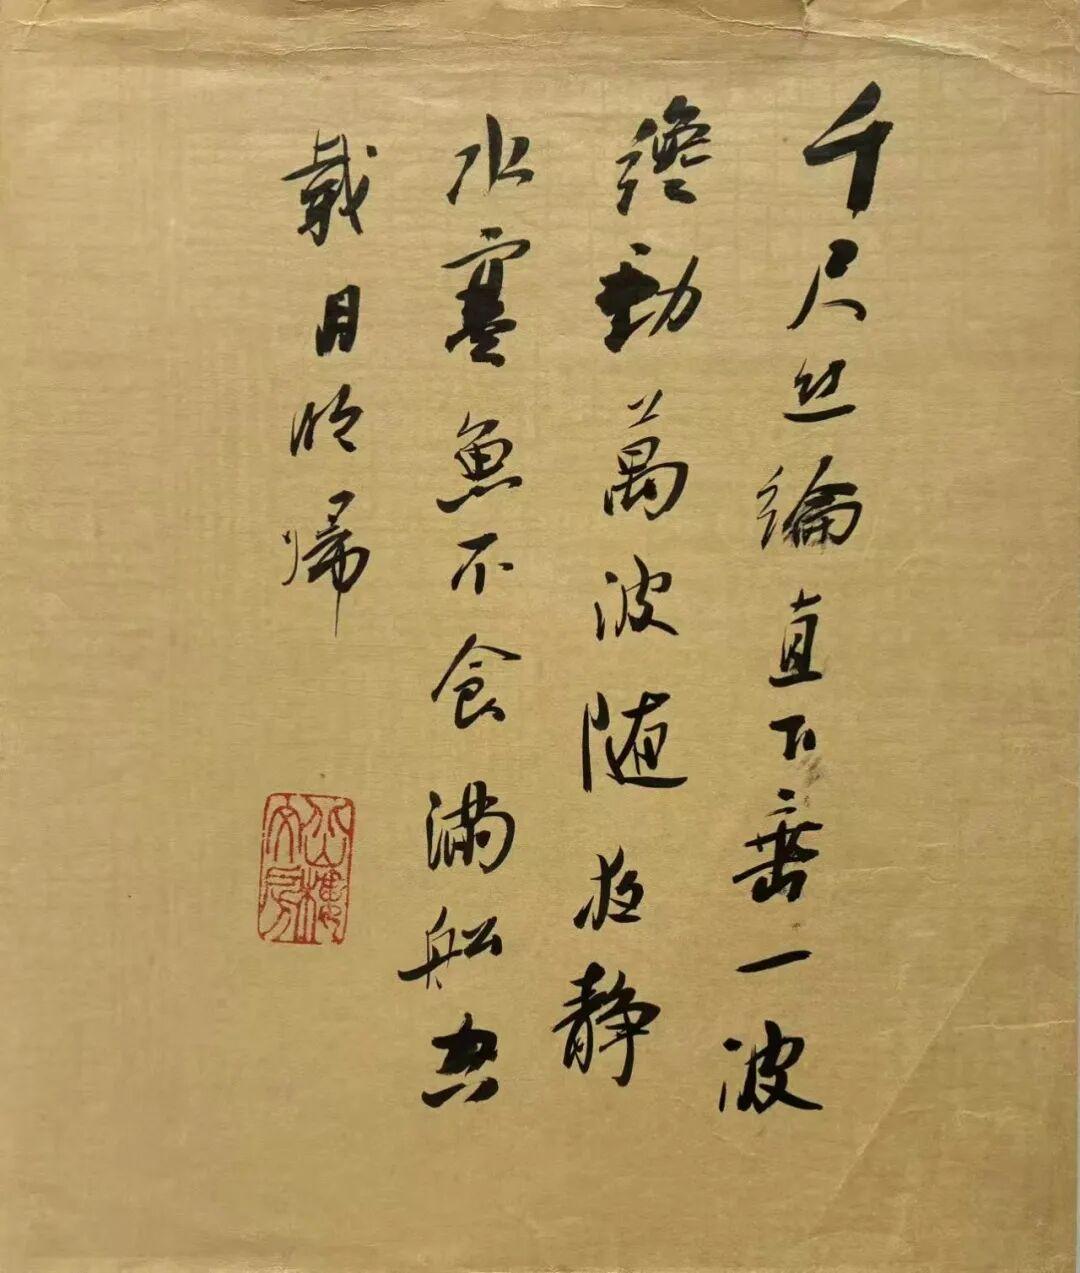 千尺丝綸直下垂一波
纔動萬波随夜静
水寒魚不食滿船空
載月明歸